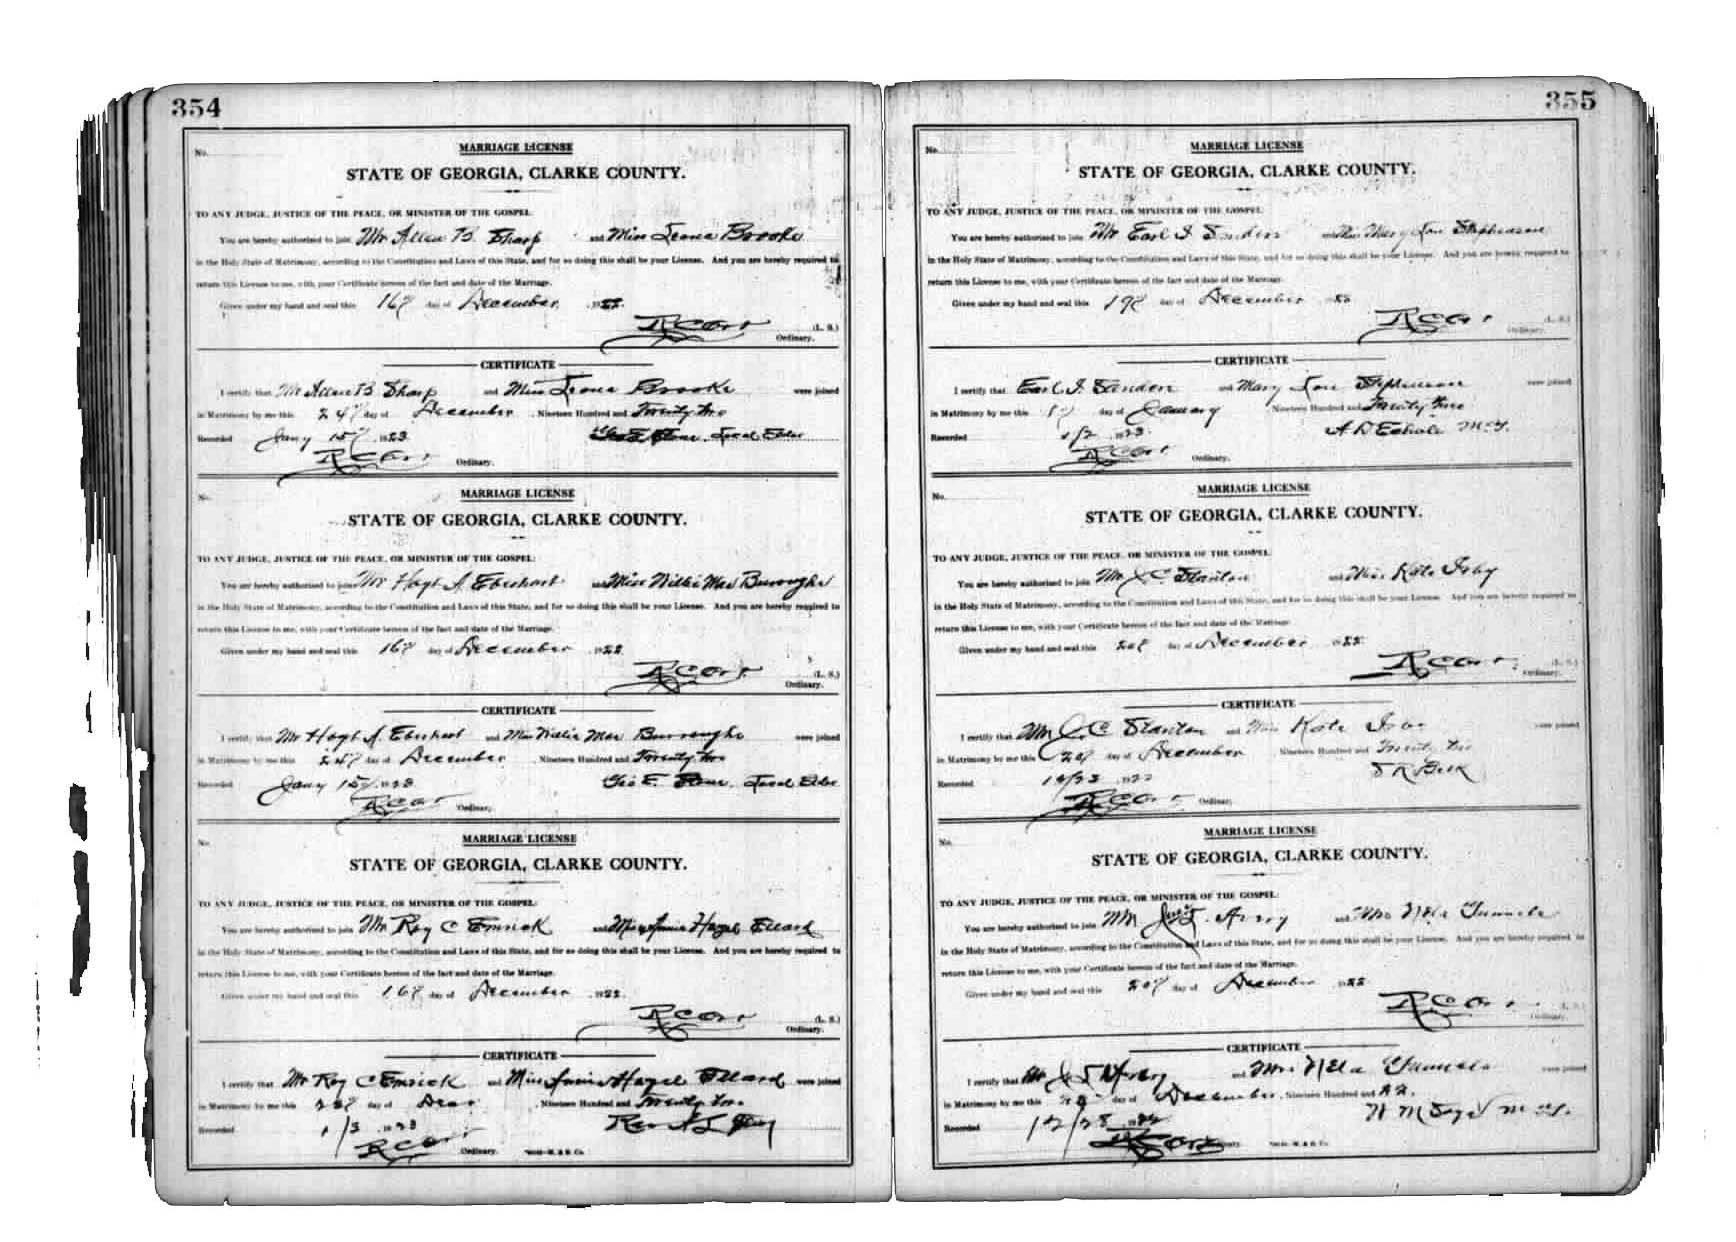 354
No.
MARRIAGE LICENSE
STATE OF GEORGIA, CLARKE COUNTY.
TO ANY JUDGE, JUSTICE OF THE PEACE, OR MINISTER OF THE GOSPEL:
You are hereby authorized to join Mr Allen B Sharp and Miss Leona Brooks
in the Holy State of Matrimony, according to the Constitution and Laws of this State, and for so doing this shall be your License. And you are hereby required to
return this License to me, with your Certificate hereon of the fact and date of the Marriage.
Given under my hand and seal this 16th day of December 1922.
R C Orr (L. S.)
Ordinary.
CERTIFICATE
I certify that Mr Allen B Sharp and Miss Leona Brooks were joined
in Matrimony by me this 24th day of December, Nineteen Hundred and Twenty Two
Recorded Jany 15th 1923 Geo E Stone, Local Elder
R C Orr Ordinary.
No.
MARRIAGE LICENSE
STATE OF GEORGIA, CLARKE COUNTY.
TO ANY JUDGE, JUSTICE OF THE PEACE, OR MINISTER OF THE GOSPEL:
You are hereby authorized to join Mr Hoyt A. Eberhart and Miss Willie Mae Burroughs
in the Holy State of Matrimony, according to the Constitution and Laws of this State, and for so doing this shall be your License. And you are hereby required to
return this License to me, with your Certificate hereon of the fact and date of the Marriage.
Given under my hand and seal this 16th day of December 1922.
R C Orr (L. S.)
Ordinary.
CERTIFICATE
I certify that Mr Hoyt A. Eberhart and Miss Willie Mae Burroughs were joined
in Matrimony by me this 24th day of December, Nineteen Hundred and Twenty Two
Recorded Jany 15th 1923 Geo E. Stone, Local Elder
R C Orr Ordinary.
No.
MARRIAGE LICENSE
STATE OF GEORGIA, CLARKE COUNTY.
TO ANY JUDGE, JUSTICE OF THE PEACE, OR MINISTER OF THE GOSPEL:
You are hereby authorized to join Mr Roy C Emrick and Miss Hazel Ellard
in the Holy State of Matrimony, according to the Constitution and Laws of this State, and for so doing this shall be your License. And you are hereby required to
return this License to me, with your Certificate hereon of the fact and date of the Marriage.
Given under my hand and seal this 16th day of December 1922.
R C Orr (L. S.)
Ordinary.
CERTIFICATE
I certify that Mr Roy C Emrick and Miss Hazel Ellard were joined
in Matrimony by me this day of Nineteen Hundred and Twenty Two
Recorded 1/3 1923 Rev
R C Orr Ordinary.
355
No.
MARRIAGE LICENSE
STATE OF GEORGIA, CLARKE COUNTY.
TO ANY JUDGE, JUSTICE OF THE PEACE, OR MINISTER OF THE GOSPEL:
You are hereby authorized to join Mr Earl I and Miss Mary Lou Stephenson
in the Holy State of Matrimony, according to the Constitution and Laws of this State, and for so doing this shall be your License. And you are hereby required to
return this License to me, with your Certificate hereon of the fact and date of the Marriage.
Given under my hand and seal this 19th day of December 1922
R C Orr (L. S.)
Ordinary.
CERTIFICATE
I certify that Earl I. and Mary Lou Stephenson were joined
in Matrimony by me this day of January, Nineteen Hundred and Twenty
Recorded 1/2 1923. A D Echols M. G.
R C Orr Ordinary.
No.
MARRIAGE LICENSE
STATE OF GEORGIA, CLARKE COUNTY.
TO ANY JUDGE, JUSTICE OF THE PEACE, OR MINISTER OF THE GOSPEL:
You are hereby authorized to join Mr J C Stanton and Miss Kate Isby
in the Holy State of Matrimony, according to the Constitution and Laws of this State, and for so doing this shall be your License. And you are hereby required to
return this License to me, with your Certificate hereon of the fact and date of the Marriage.
Given under my hand and seal this 20th day of December 1922.
R C Orr (L. S.)
Ordinary.
CERTIFICATE
I certify that Mr J. C Stanton and Miss Kate were joined
in Matrimony by me this 20th day of December Nineteen Hundred and Twenty Two
Recorded 1922 S R Belk
R C Orr Ordinary.
No.
MARRIAGE LICENSE
STATE OF GEORGIA, CLARKE COUNTY.
TO ANY JUDGE, JUSTICE OF THE PEACE, OR MINISTER OF THE GOSPEL:
You are hereby authorized to join Mr Avery and Mrs Nela Gunnels
in the Holy State of Matrimony, according to the Constitution and Laws of this State, and for so doing this shall be your License. And you are hereby required to
return this License to me, with your Certificate hereon of the fact and date of the Marriage.
Given under my hand and seal this 20th day of December 1922.
R C Orr (L. S.)
Ordinary.
CERTIFICATE
I certify that Mr J T Avery and Mrs Nela Gunnels were joined
in Matrimony by me this day of December, Nineteen Hundred and 22.
Recorded 12/28 1922 W M M. G.
Ordinary.